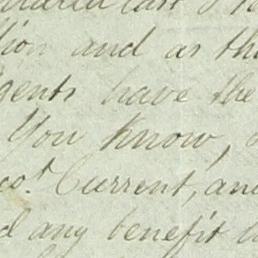 last
and as the
gents have the
You know,
co.t Current, and
any benefit